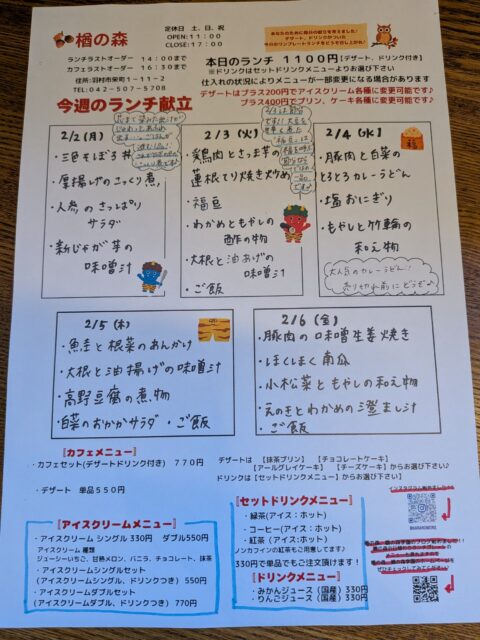 楢の森
定休日 土、日、祝
OPEN:11:00
CLOSE:17:00
ランチラストオーダー 14:00まで
カフェラストオーダー 16:30まで
住所:羽村市栄町1-11-2
TEL:042-507-5708
本日のランチ 1100円【デザート、ドリンク付き】
※ドリンクはセットドリンクメニューよりお選び下さい
仕入れの状況によりメニューが一部変更になる場合があります
デザートはプラス200円でアイスクリーム各種に変更可能です♪
プラス400円でプリン、ケーキ各種に変更可能です♪
今週のランチ献立
2/2(月)
・三色そぼろ丼
・厚揚げのこっくり煮
・人参のさっぱり
サラダ
・新じゃが芋の
味噌汁
2/3(火)
・鶏肉とさつま芋の
蓮根てり焼き炒め
・福豆
・わかめともやしの
酢の物
・大根と油あげの
味噌汁
・ご飯
2/4(水)
・豚肉と白菜の
とろとろカレーうどん
・塩おにぎり
・もやしと竹輪の
和え物
大人気のカレーうどん!!
売り切れ前にどうぞ♪
2/5(木)
・魚鮭と根菜のあんかけ
・大根と油揚げの味噌汁
・高野豆腐の煮物
・白菜のおかかサラダ ・ご飯
2/6(金)
・豚肉の味噌生姜焼き
・ほくほく南瓜
・小松菜ともやしの和え物
・えのきとわかめの澄まし汁
・ご飯
『カフェメニュー』
・カフェセット(デザートドリンク付き) 770円
・デザート 単品550円
デザートは 【抹茶プリン】 【チョコレートケーキ】
【アールグレイケーキ】 【チーズケーキ】からお選び下さい♪
ドリンクは【セットドリンクメニュー】からお選び下さい♪
『アイスクリームメニュー』
・アイスクリーム シングル 330円 ダブル550円
アイスクリーム 種類
ジューシーいちご、甘熟メロン、バニラ、チョコレート、抹茶
・アイスクリームシングルセット
(アイスクリームシングル、ドリンクつき) 550円
・アイスクリームダブルセット
(アイスクリームダブル、ドリンクつき) 770円
『セットドリンクメニュー』
・緑茶(アイス:ホット)
・コーヒー(アイス:ホット)
・紅茶(アイス:ホット)
ノンカフェインの紅茶もご用意してます♪
330円で単品でもご注文頂けます!
『ドリンクメニュー』
・みかんジュース(国産)330円
・りんごジュース(国産)330円